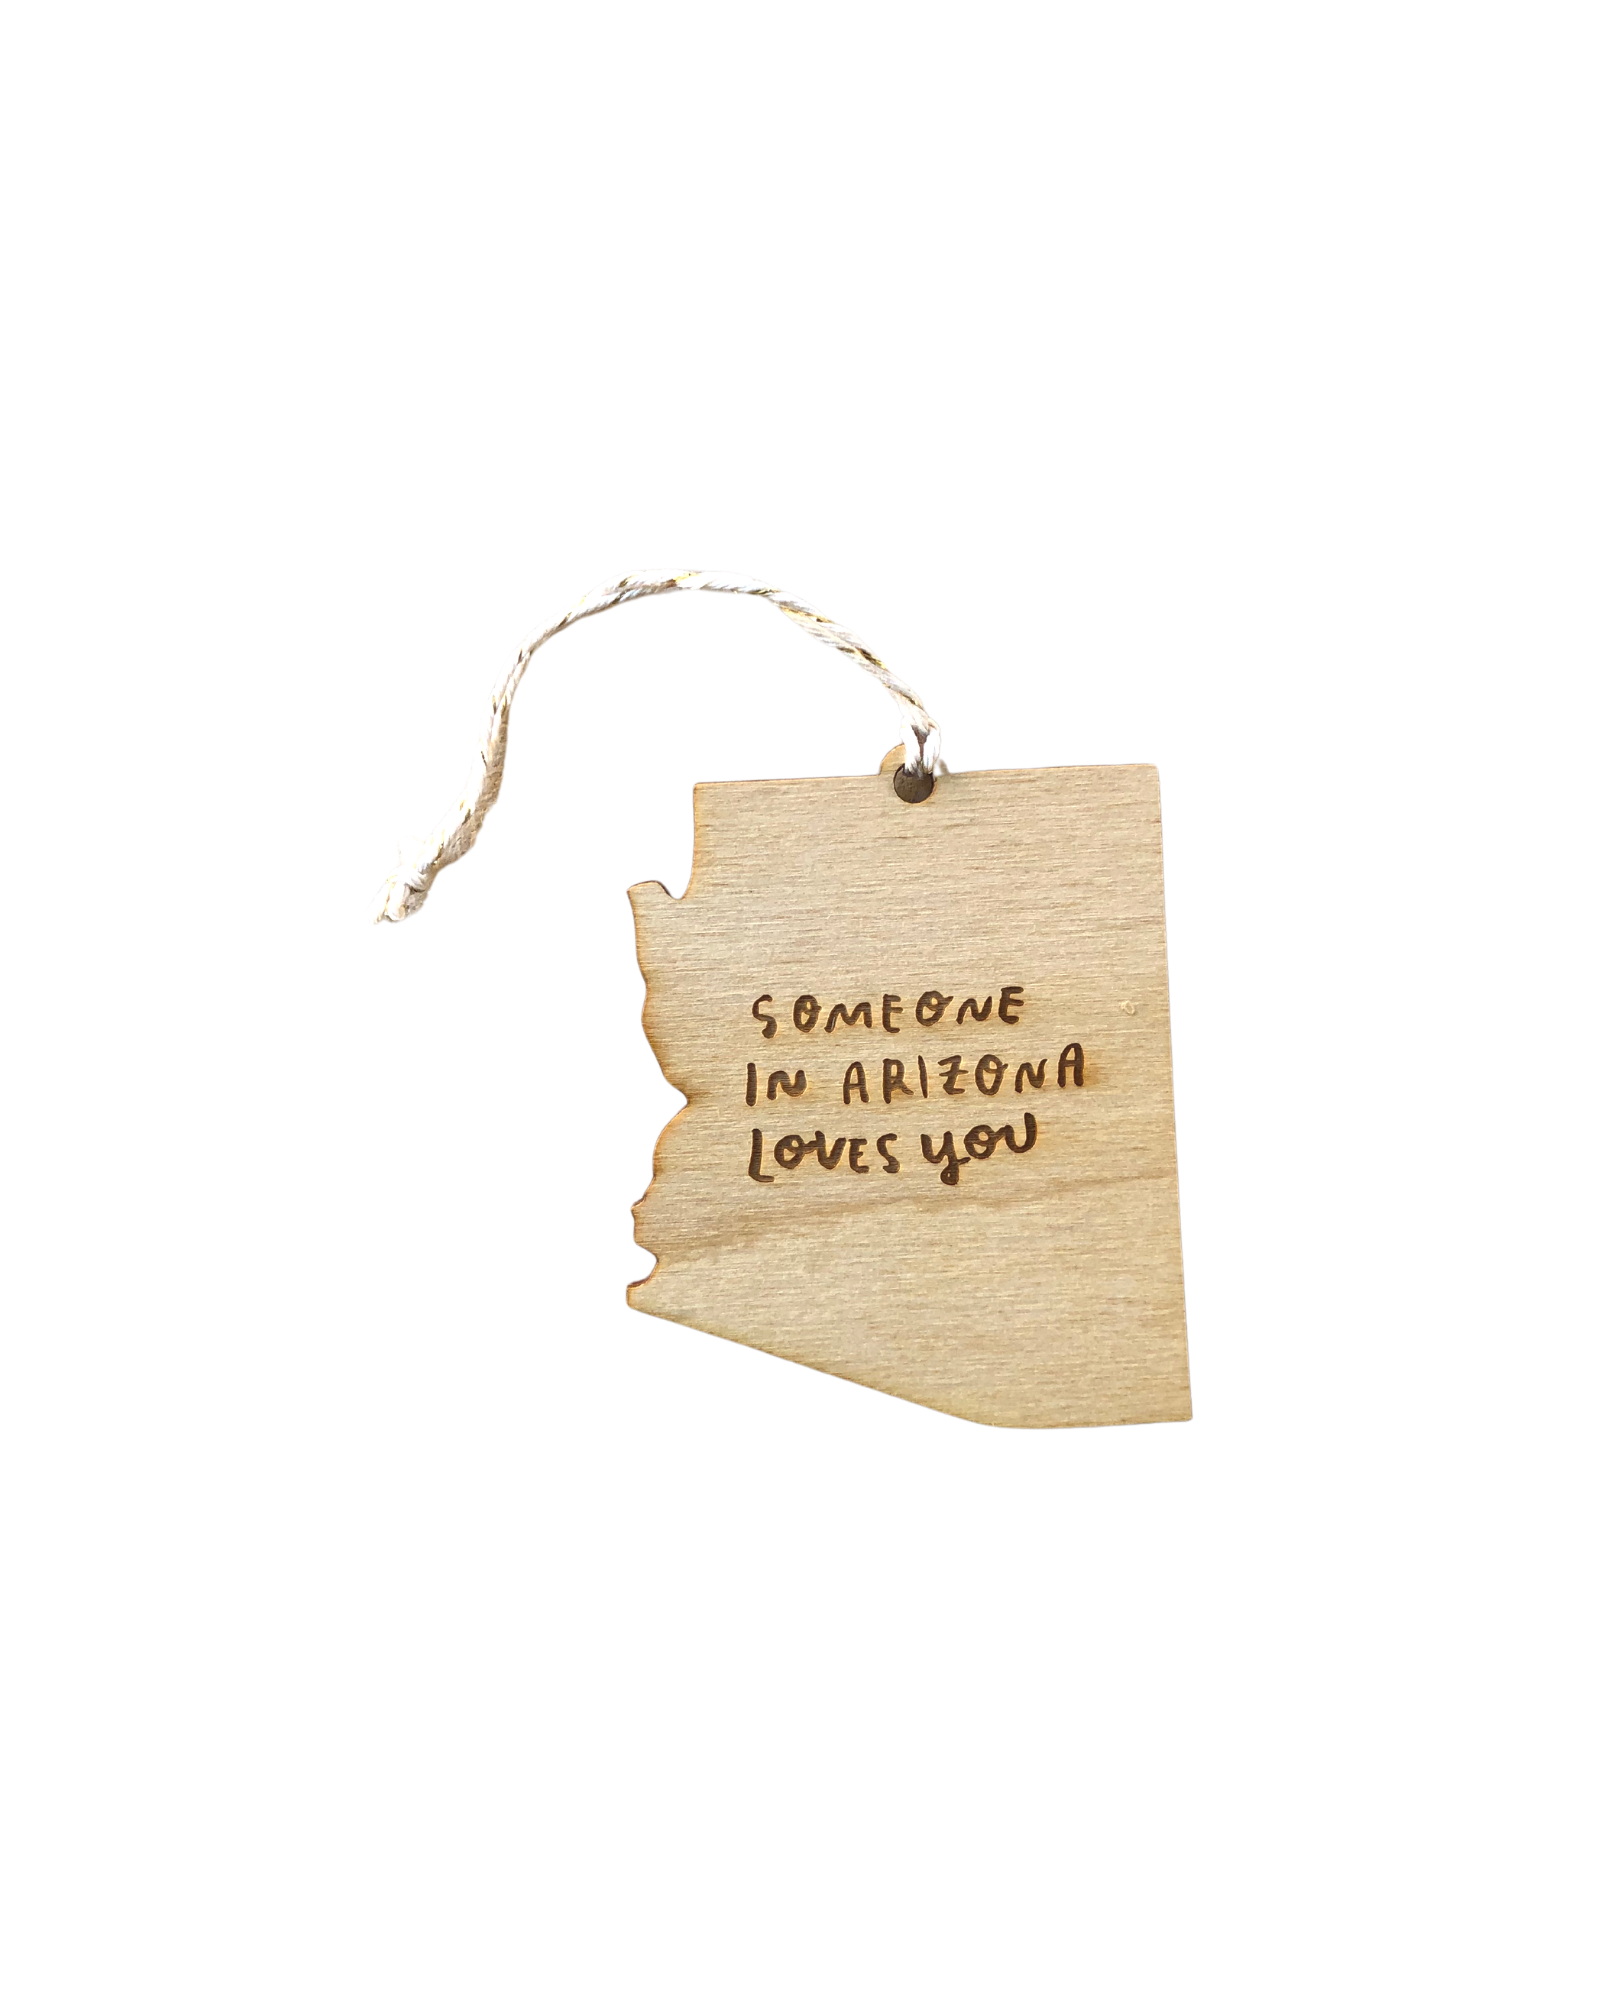 SOMEONE
IN ARIZONA
LOVES YOU